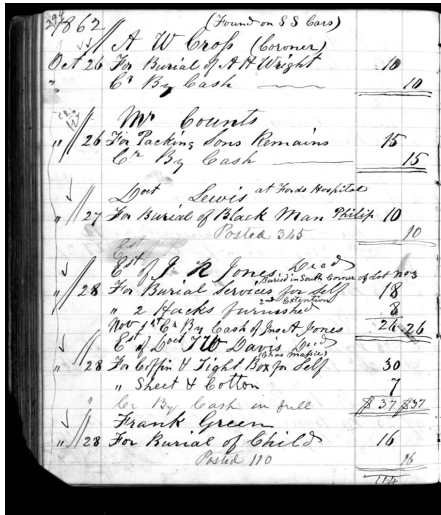 294
1862 (Found on S S Cars)
A W Cross (Coroner)
Oct 26 For Burial of A H Wright 10
" Cr By Cash 10
Mr Counts
" 26 For Packing Sons Remains 15
Cr By Cash 15
Doct Lewis at Fords Hospital
" 27 For Burial of Black Man Philip 10
Posted 345 10
Est
Est of J R Jones Decd
Buried in South Corner of Lot No 3
" 28 For Burial Services for Self 18
2nd Extention
" 2 Hacks furnished 8
Nov 1st Cr By Cash of Jno A Jones 26 26
Est of Doct T W Davis Decd
" 28 For Coffin & Tight Box for Self 30
" Sheet & Cotton 7
" Cr By Cash in full $37 $37
Frank Green
" 28 For Burial of Child 16
Posted 110 16
114